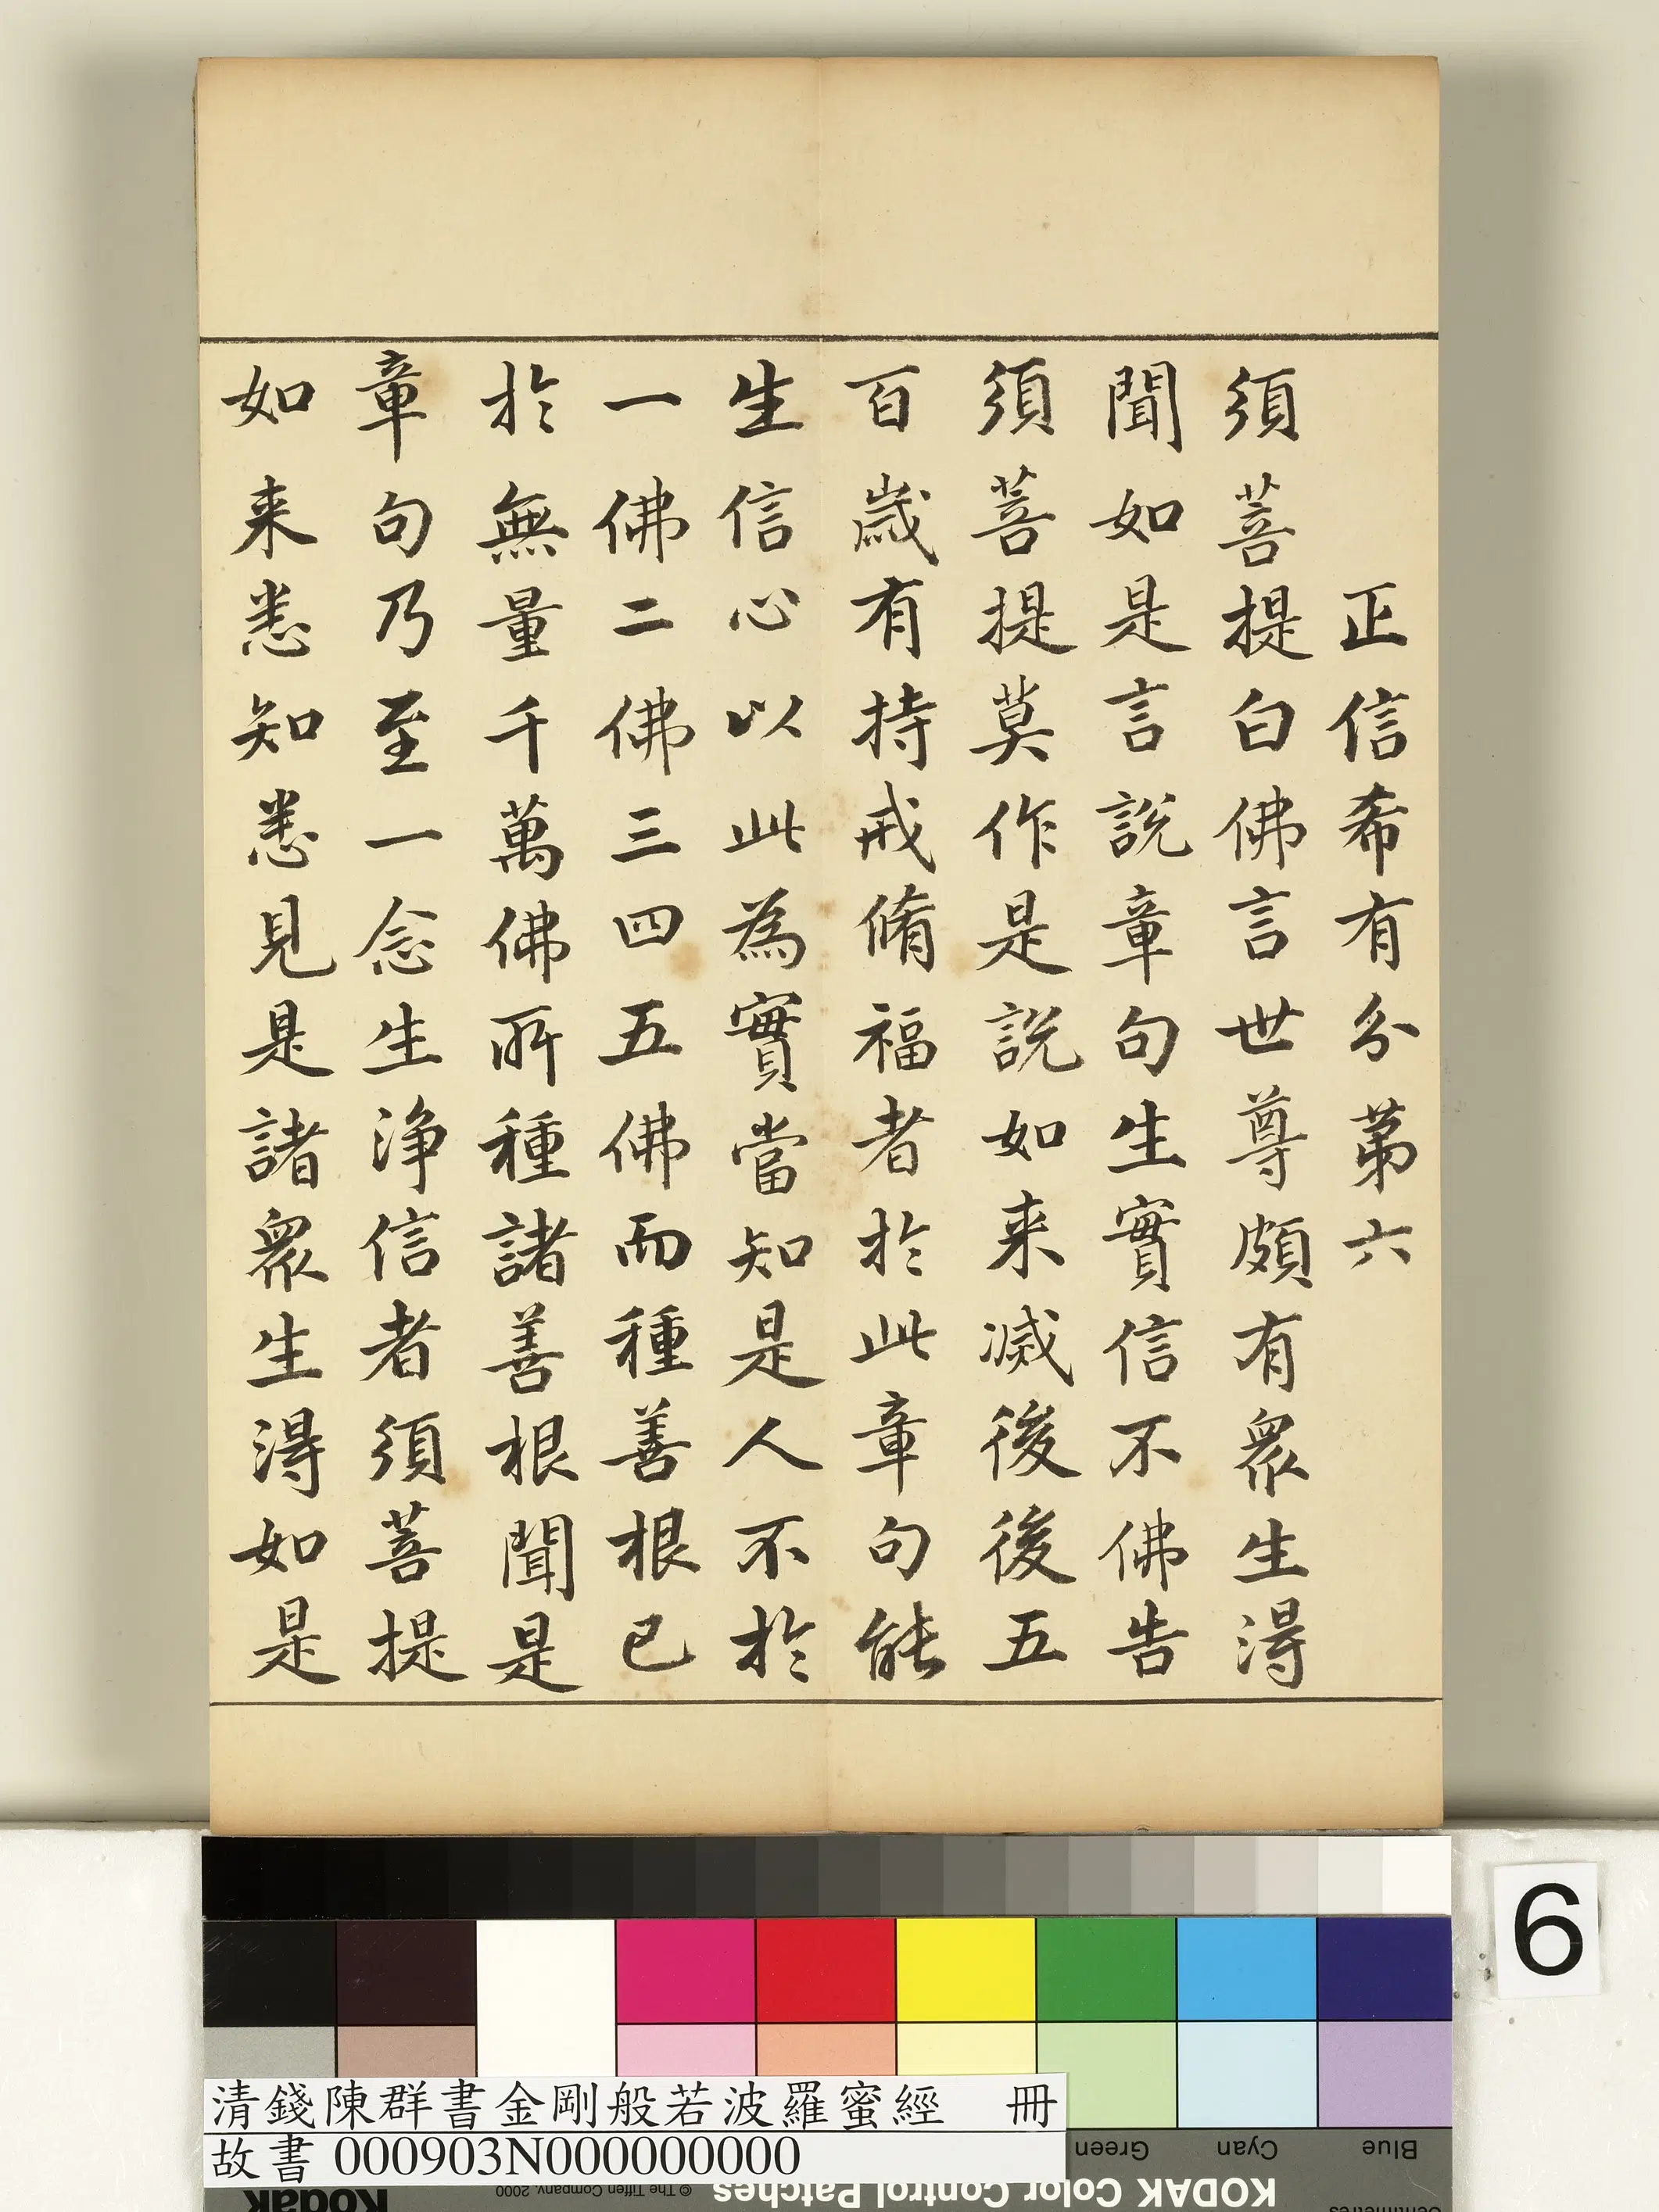 正信希有分第六
須菩提白佛言世尊頗有衆生得
聞如是言說章句生實信不佛告
須菩提莫作是說如来滅後後五
百歲有持戒脩福者於此章句能
生信心以此為實當知是人不於
一佛二佛三四五佛而種善根已
於無量千萬佛所種諸善根聞是
章句乃至一念生淨信者須菩提
如来悉知悉見是諸衆生得如是
6
清錢陳群書金剛般若波羅蜜經 冊
故書 000903N000000000
Blue
Cyan
Green
KODAK Color Control Patches
© The Tiffen Company, 2000
Kodak
Centimetres